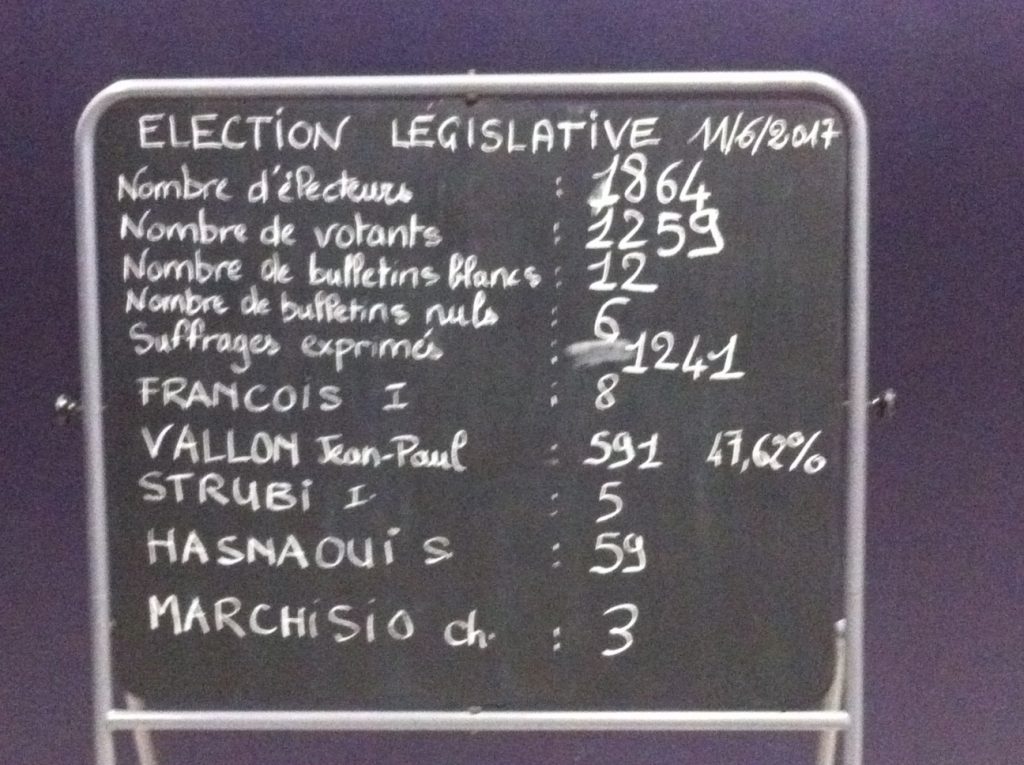 ELECTION LÉGISLATIVE 11/6/2017
Nombre d'électeurs : 1864
Nombre de votants : 1259
Nombre de bulletins blancs : 12
Nombre de bulletins nuls : 6
Suffrages exprimés : 1241
FRANCOIS I : 8
VALLON Jean-Paul : 591 47,62%
STRUBI I : 5
HASNAOUI S : 59
MARCHISIO ch. : 3